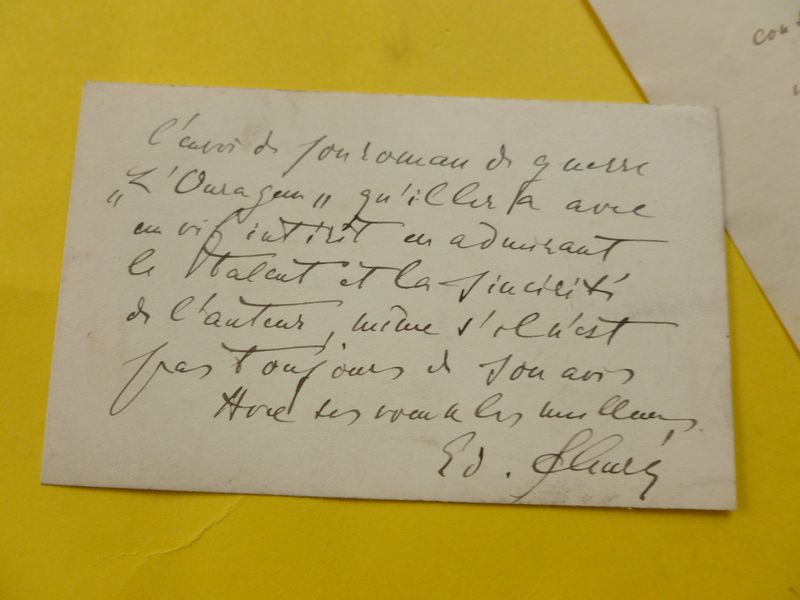 l'envoi de son roman de guerre
„L'Ouragan„ qu'il lira avec
un vif intérêt en admirant
le talent et la sincérité
de l'auteur, même s'il n'est
pas toujours de son avis
Avec ses voeux les meilleurs
Ed. Schuré
con